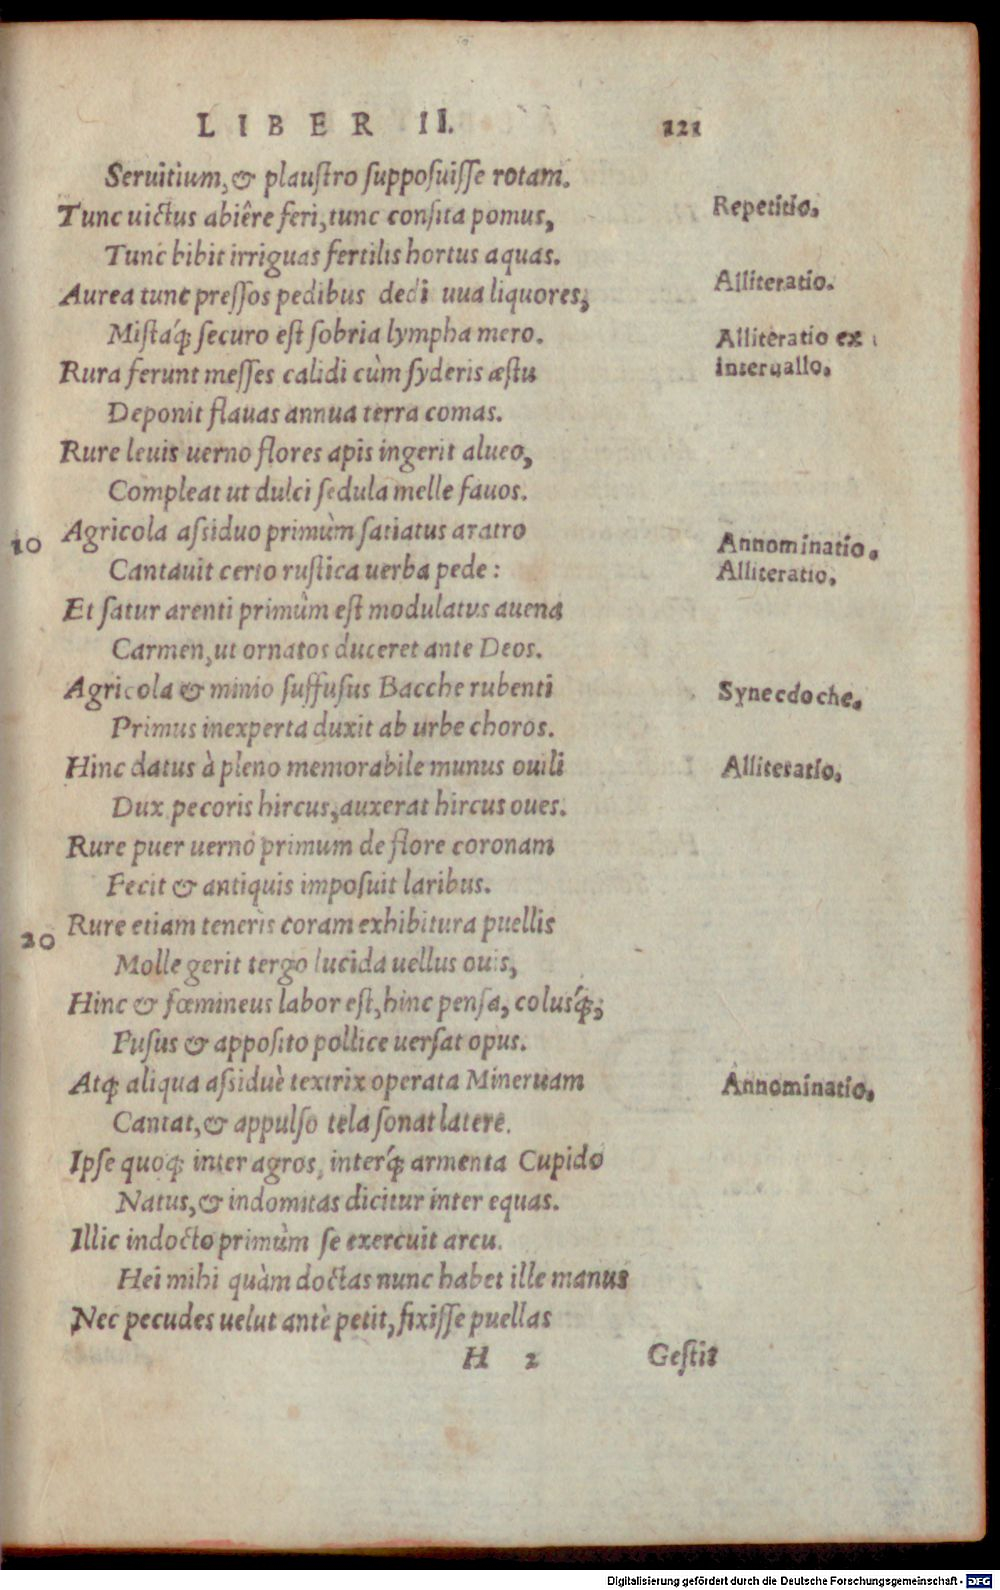 LIBER II. 121
Seruitium, & plaustro supposuisse rotam.
Tunc uictus abiêre feri, tunc consita pomus,
Repetitio.
Tunc bibit irriguas fertilis hortus aquas.
Aurea tunc pressos pedibus dedi uua liquores,
Alliteratio.
Mistaq́; securo est sobria lympha mero.
Alliteratio ex
interuallo.
Rura ferunt messes calidi cùm syderis æstu
Deponit flauas annua terra comas.
Rure leuis uerno flores apis ingerit alueo,
Compleat ut dulci sedula melle fauos.
10 Agricola assiduo primùm satiatus aratro
Annominatio.
Cantauit certo rustica uerba pede:
Alliteratio.
Et satur arenti primùm est modulatus auena
Carmen, ut ornatos duceret ante Deos.
Agricola & minio suffusus Bacche rubenti
Synecdoche.
Primus inexperta duxit ab urbe choros.
Hinc datus à pleno memorabile munus ouili
Alliteratio.
Dux pecoris hircus, auxerat hircus oues.
Rure puer uerno primum de flore coronam
Fecit & antiquis imposuit laribus.
20 Rure etiam teneris coram exhibitura puellis
Molle gerit tergo lucida uellus ouis,
Hinc & fœmineus labor est, hinc pensa, colusq́;;
Fusus & apposito pollice uersat opus.
Atq; aliqua assiduè textrix operata Mineruam
Annominatio.
Cantat, & appulso tela sonat latere.
Ipse quoq; inter agros, interq́; armenta Cupido
Natus, & indomitas dicitur inter equas.
Illic indocto primùm se exercuit arcu.
Hei mihi quàm doctas nunc habet ille manus
Nec pecudes uelut antè petit, fixisse puellas
H 2 Gestit
Digitalisierung gefördert durch die Deutsche Forschungsgemeinschaft - DFG